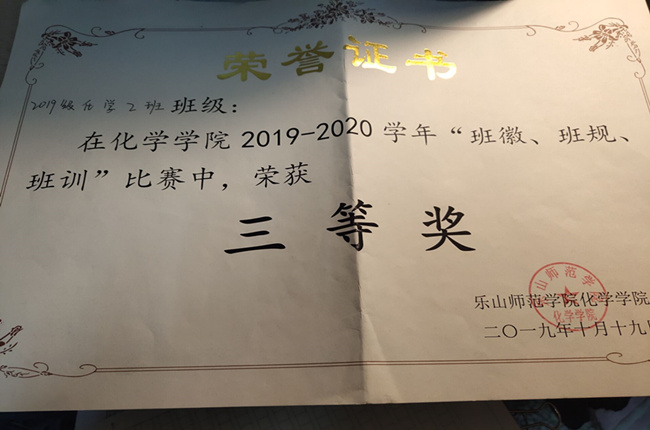 荣誉证书
2019级化学2班班级：
在化学学院2019-2020学年“班徽、班规、
班训”比赛中，荣获
三等奖
乐山师范学院化学学院
二〇一九年十月十九日
乐山师范学院
化学学院